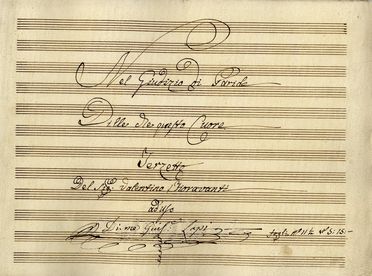 Nel Giudizio di Paride
Dille che questo Cuore
Terzetto
Del Sig: Valentino Fioravanti
ad uso
Di me Lopi
fogli N° 11